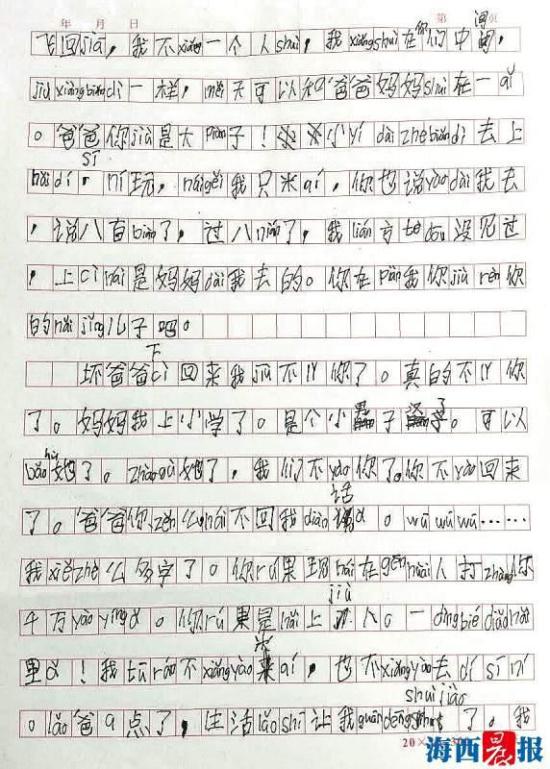 年 月 日 第 页
飞回jiā，我不xiǎng一个人shuì，我xiǎngshuì在你们中间，
jiù xiàng 一样，天可以和爸爸妈妈shuì在一qǐ
。爸爸你jiù是大piàn子！小yí dài zhe 去上
hǎi dí sī ní玩，hái gěi我只米qí，你也说yào dài我去
，说八百biàn了，过八nián了，我liǎn 都没见过
，上cì hái是妈妈dài我去的。你在piàn我你jiù rēn你
的 儿子吧。
坏爸爸下cì回来我jiù不 你了。真的不 你
了。妈妈我上小学了。是个小男子 了。可以
bǎo hù她了。zhào gù她了，我们不yào你了。你不yào回来
了。爸爸你zěn么hái不回我diàn话a。wū wū wū……
我xiě zhè么多字了。你rú果 hái在gēn huài人打zhàng你
千万yào yíng a。你rú果是 上jiù人a一dìng bié diào hǎi
里a！我tū rán不xiǎng yào米qí，也不xiǎng yào去dí sī ní
。lǎo爸9点了，生活lǎo shī让我guān dēng shuì jiào了。我
20×
海西晨报